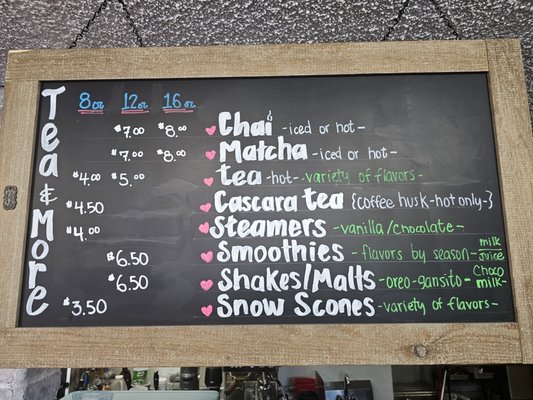 Tea & More
8oz 12oz 16oz
$7.00 $8.00 Chai -iced or hot-
$7.00 $8.00 Matcha -iced or hot-
$4.00 $5.00 tea -hot- variety of flavors-
$4.50 Cascara tea {coffee husk-hot only-}
$4.00 Steamers -vanilla/chocolate-
$6.50 Smoothies -flavors by season- milk/juice
$6.50 Shakes/Malts -oreo-gansito- Choco milk-
$3.50 Snow Scones -variety of flavors-